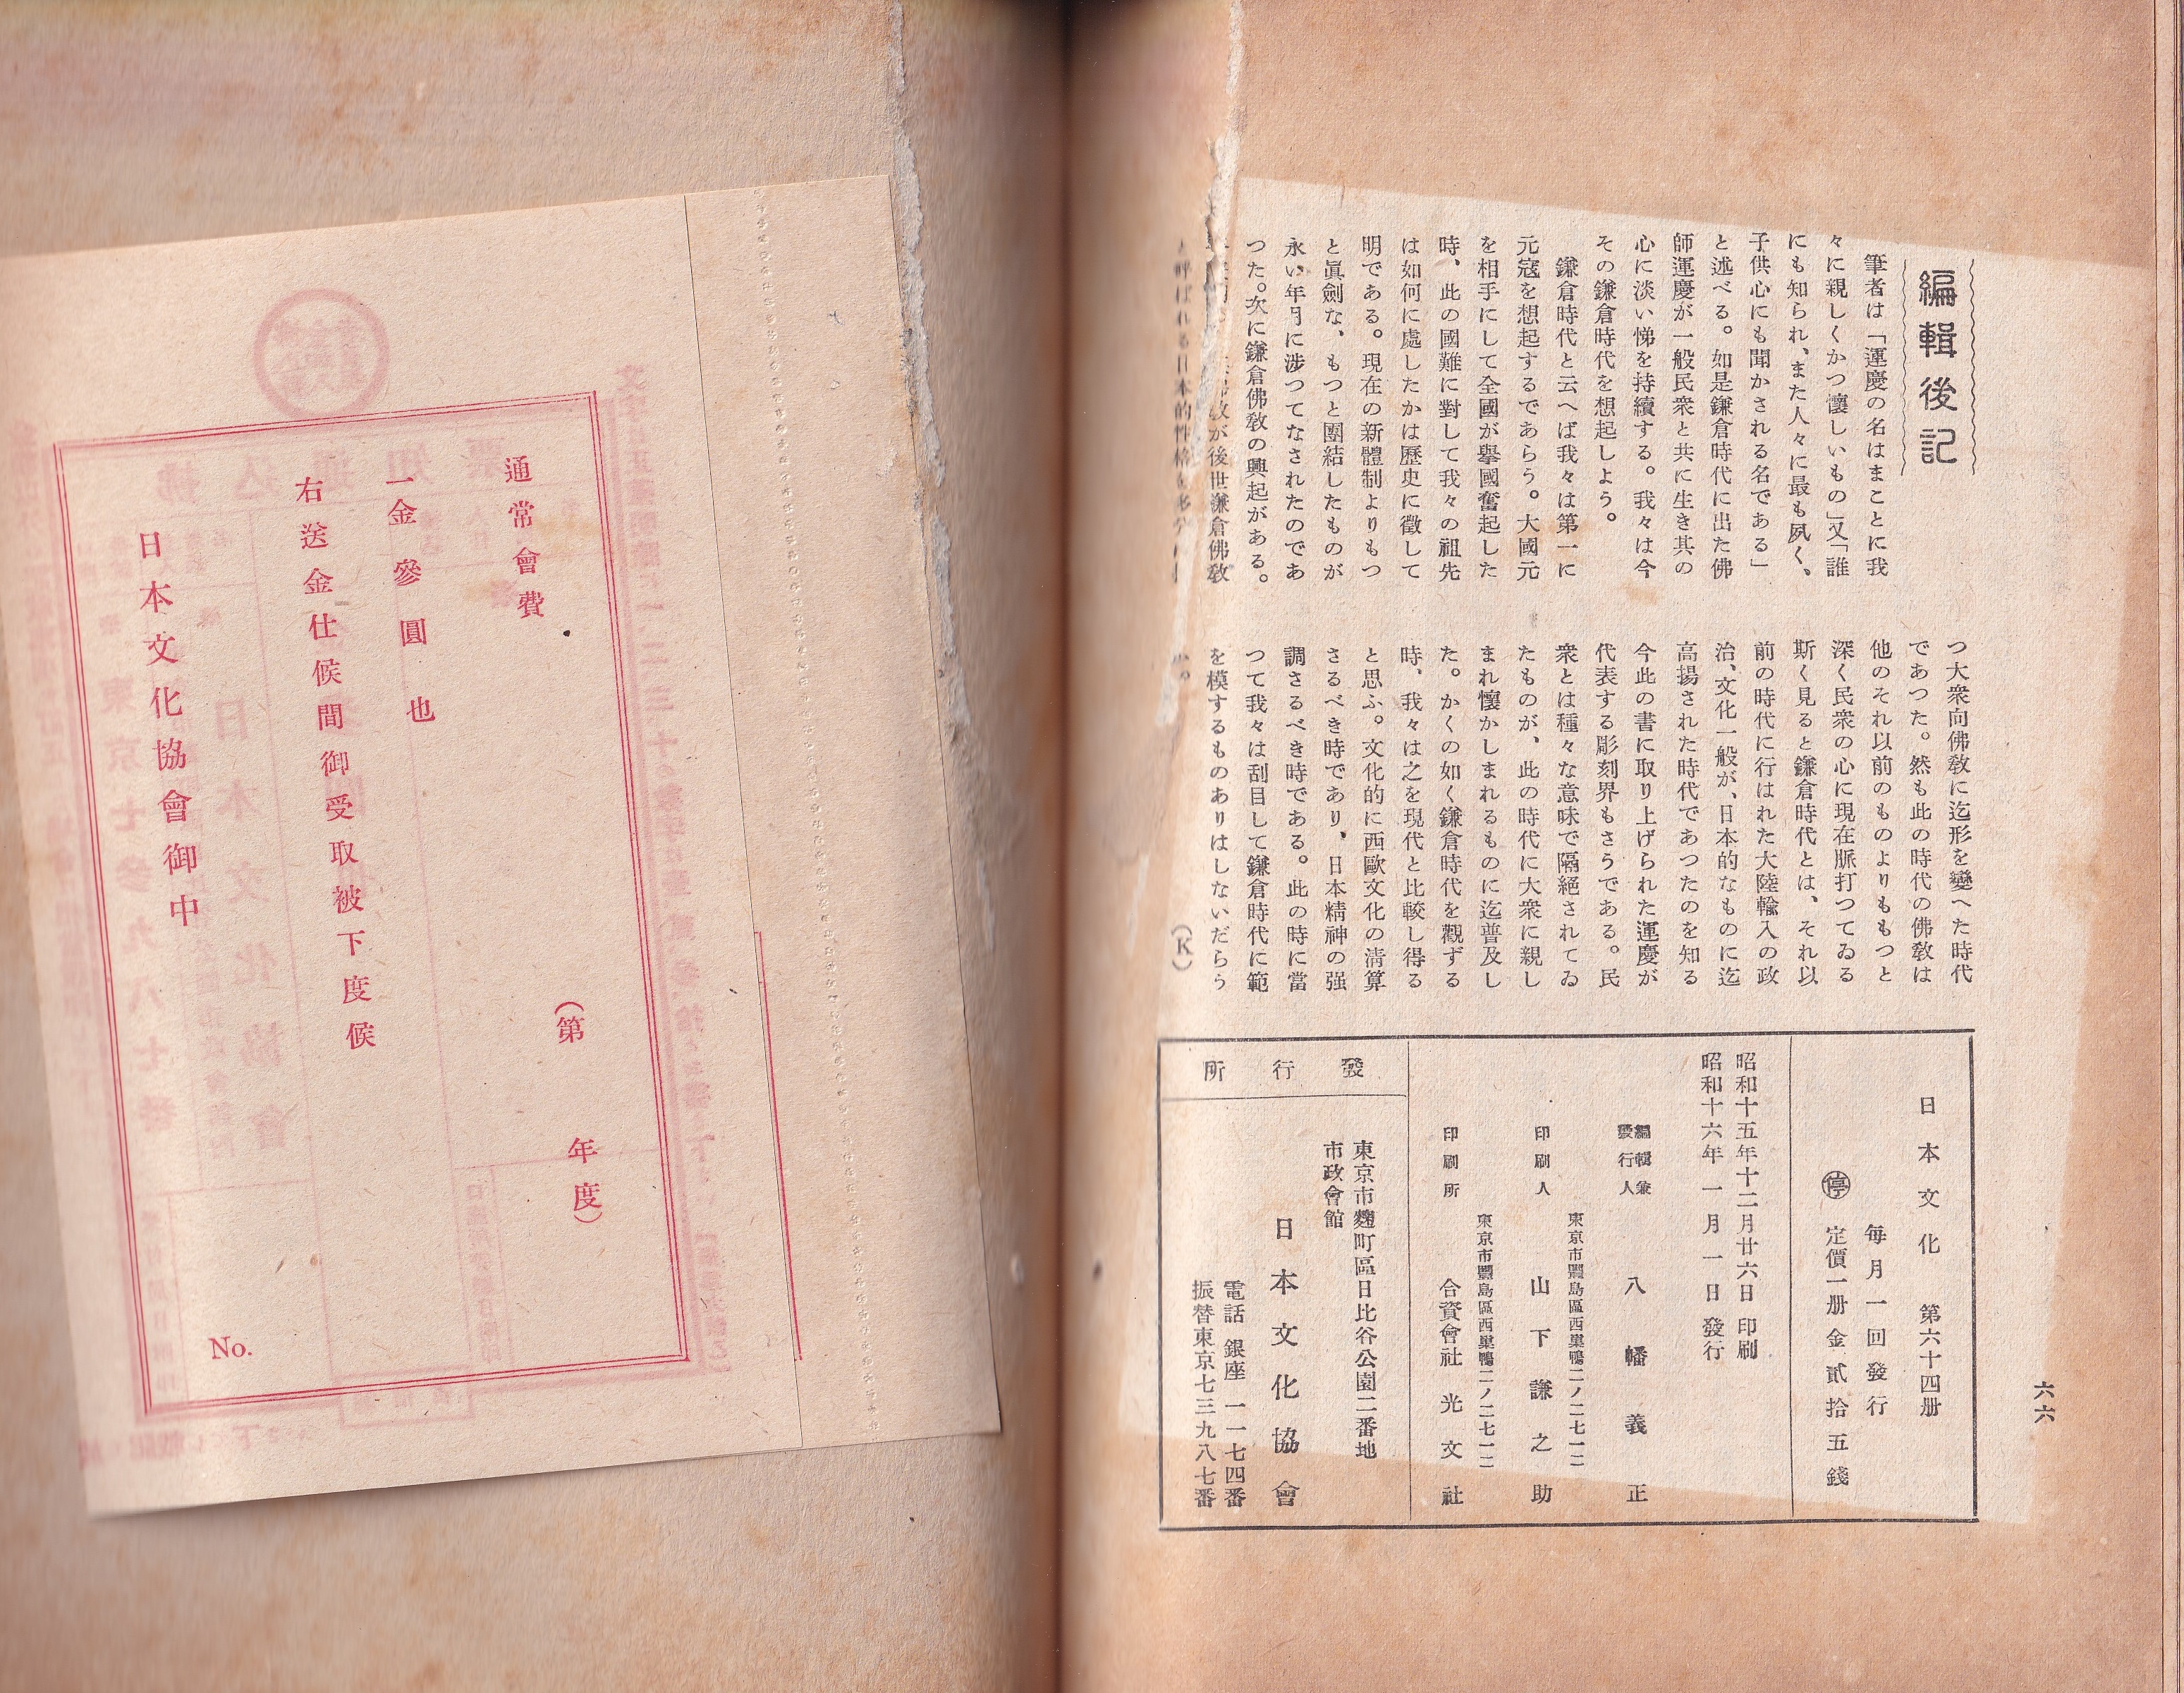 六六
編輯後記
筆者は「運慶の名はまことに我
々に親しくかつ懷しいもの」又「誰
にも知られ、また人々に最も夙く、
子供心にも聞かされる名である」
と述べる。如是鎌倉時代に出た佛
師運慶が一般民衆と共に生き其の
心に淡い悌を持續する。我々は今
その鎌倉時代を想起しよう。
鎌倉時代と云へば我々は第一に
元寇を想起するであらう。大國元
を相手にして全國が擧國奮起した
時、此の國難に對して我々の祖先
は如何に處したかは歷史に徵して
明である。現在の新體制よりもつ
と眞劍な、もつと團結したものが
永い年月に涉つてなされたのであ
つた。次に鎌倉佛敎の興起がある。
が後世鎌倉佛敎
呼ばれる日本的性格を
つ大衆向佛敎に迄形を變へた時代
であつた。然も此の時代の佛敎は
他のそれ以前のものよりももつと
深く民衆の心に現在脈打つてゐる
斯く見ると鎌倉時代とは、それ以
前の時代に行はれた大陸輸入の政
治、文化一般が、日本的なものに迄
高揚された時代であつたのを知る
今此の書に取り上げられた運慶が
代表する彫刻界もさうである。民
衆とは種々な意味で隔絕されてゐ
たものが、此の時代に大衆に親し
まれ懷かしまれるものに迄普及し
た。かくの如く鎌倉時代を觀ずる
時、我々は之を現代と比較し得る
と思ふ。文化的に西歐文化の淸算
さるべき時であり、日本精神の强
調さるべき時である。此の時に當
つて我々は刮目して鎌倉時代に範
を模するものありはしないだらう
か。
(K)
日本文化 第六十四册
每月一回發行
停 定價一册金貳拾五錢
昭和十五年十二月廿六日 印刷
昭和十六年一月一日 發行
編輯兼
發行人 八幡義正
東京市豐島區西巢鴨二ノ二七一二
印刷人 山下謙之助
東京市豐島區西巢鴨二ノ二七一二
印刷所 合資會社 光文社
發行所
東京市麴町區日比谷公園二番地
市政會館
日本文化協會
電話 銀座 一一七四番
振替東京七三九八七番
(第 年度)
通常會費
一金參圓也
右送金仕候間御受取被下度候
日本文化協會御中
No.